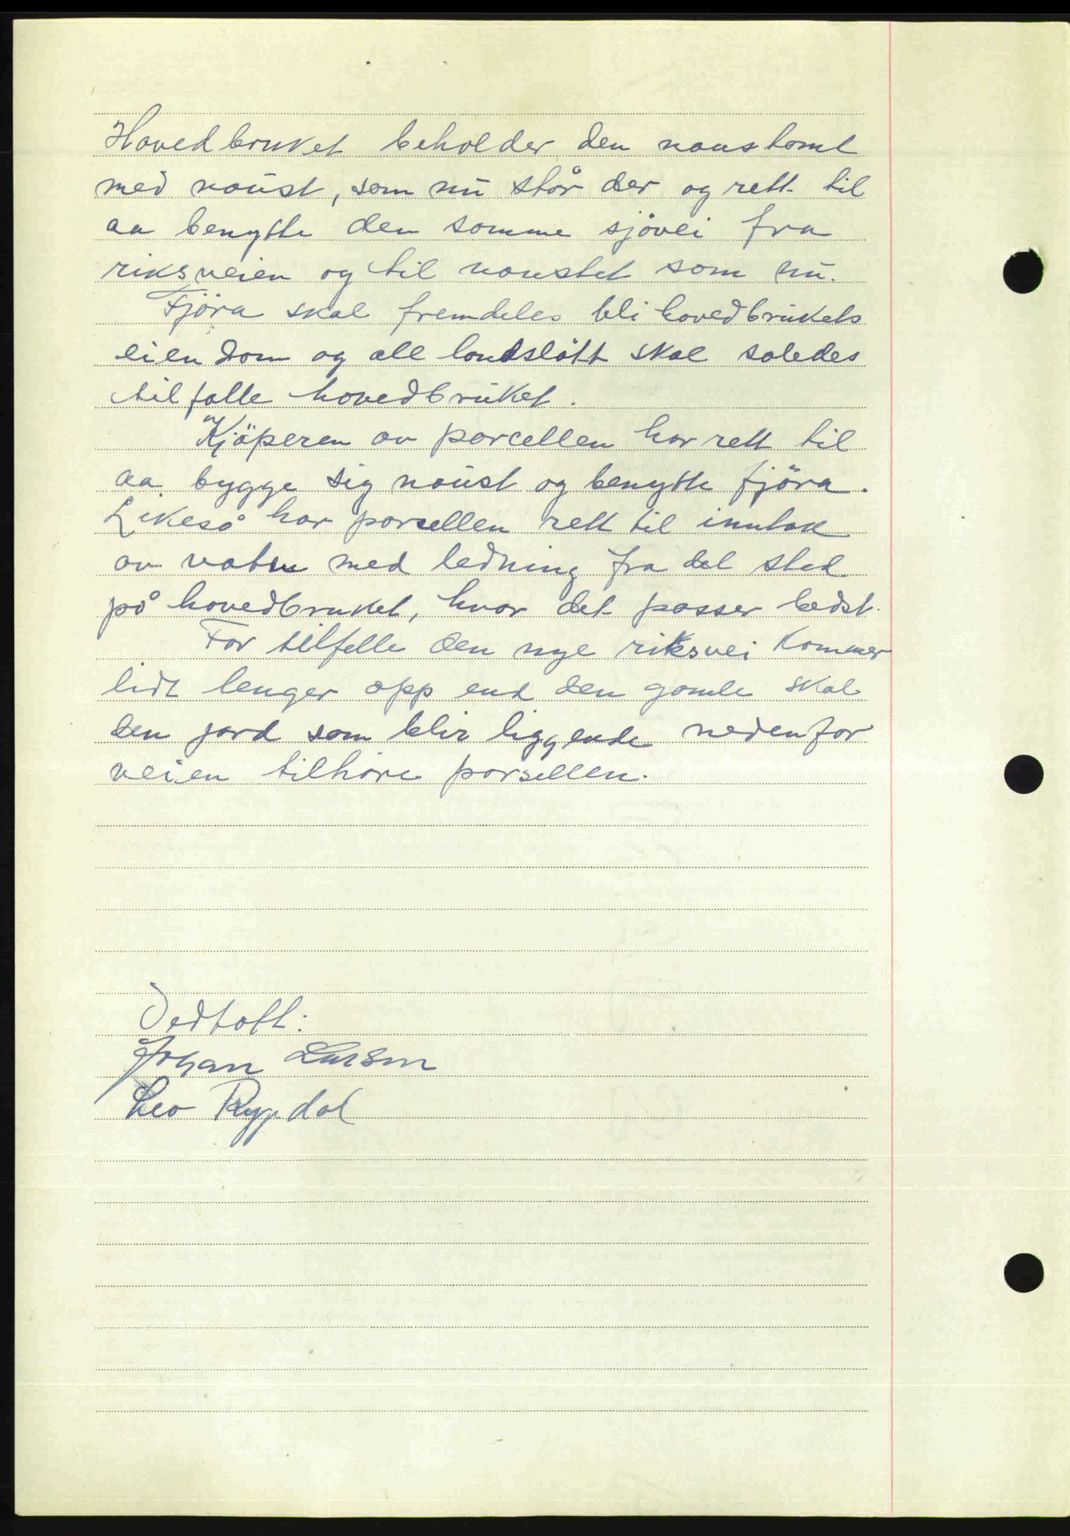 Hovedbruket beholder den naustomt
med naust, som nu står der og rett til
aa benytte den samme sjövei fra
riksveien og til naustet som nu.
Fjöra skal fremdeles bli hovedbrukets
eiendom og all landslått skal saledes
tilfalle hovedbruket.
Kjöperen av parcellen har rett til
aa bygge sig naust og benytte fjöra.
Likeså har parsellen rett til inntak
av vatn med ledning fra det sted
på hovedbruket, hvor det passer bedst.
For tilfelle den nye riksvei kommer
lidt lenger opp end den gamle skal
den jord som blir liggende nedenfor
veien tilhöre parsellen.
Vedtatt:
Johan Larsen
Leo Rypdal